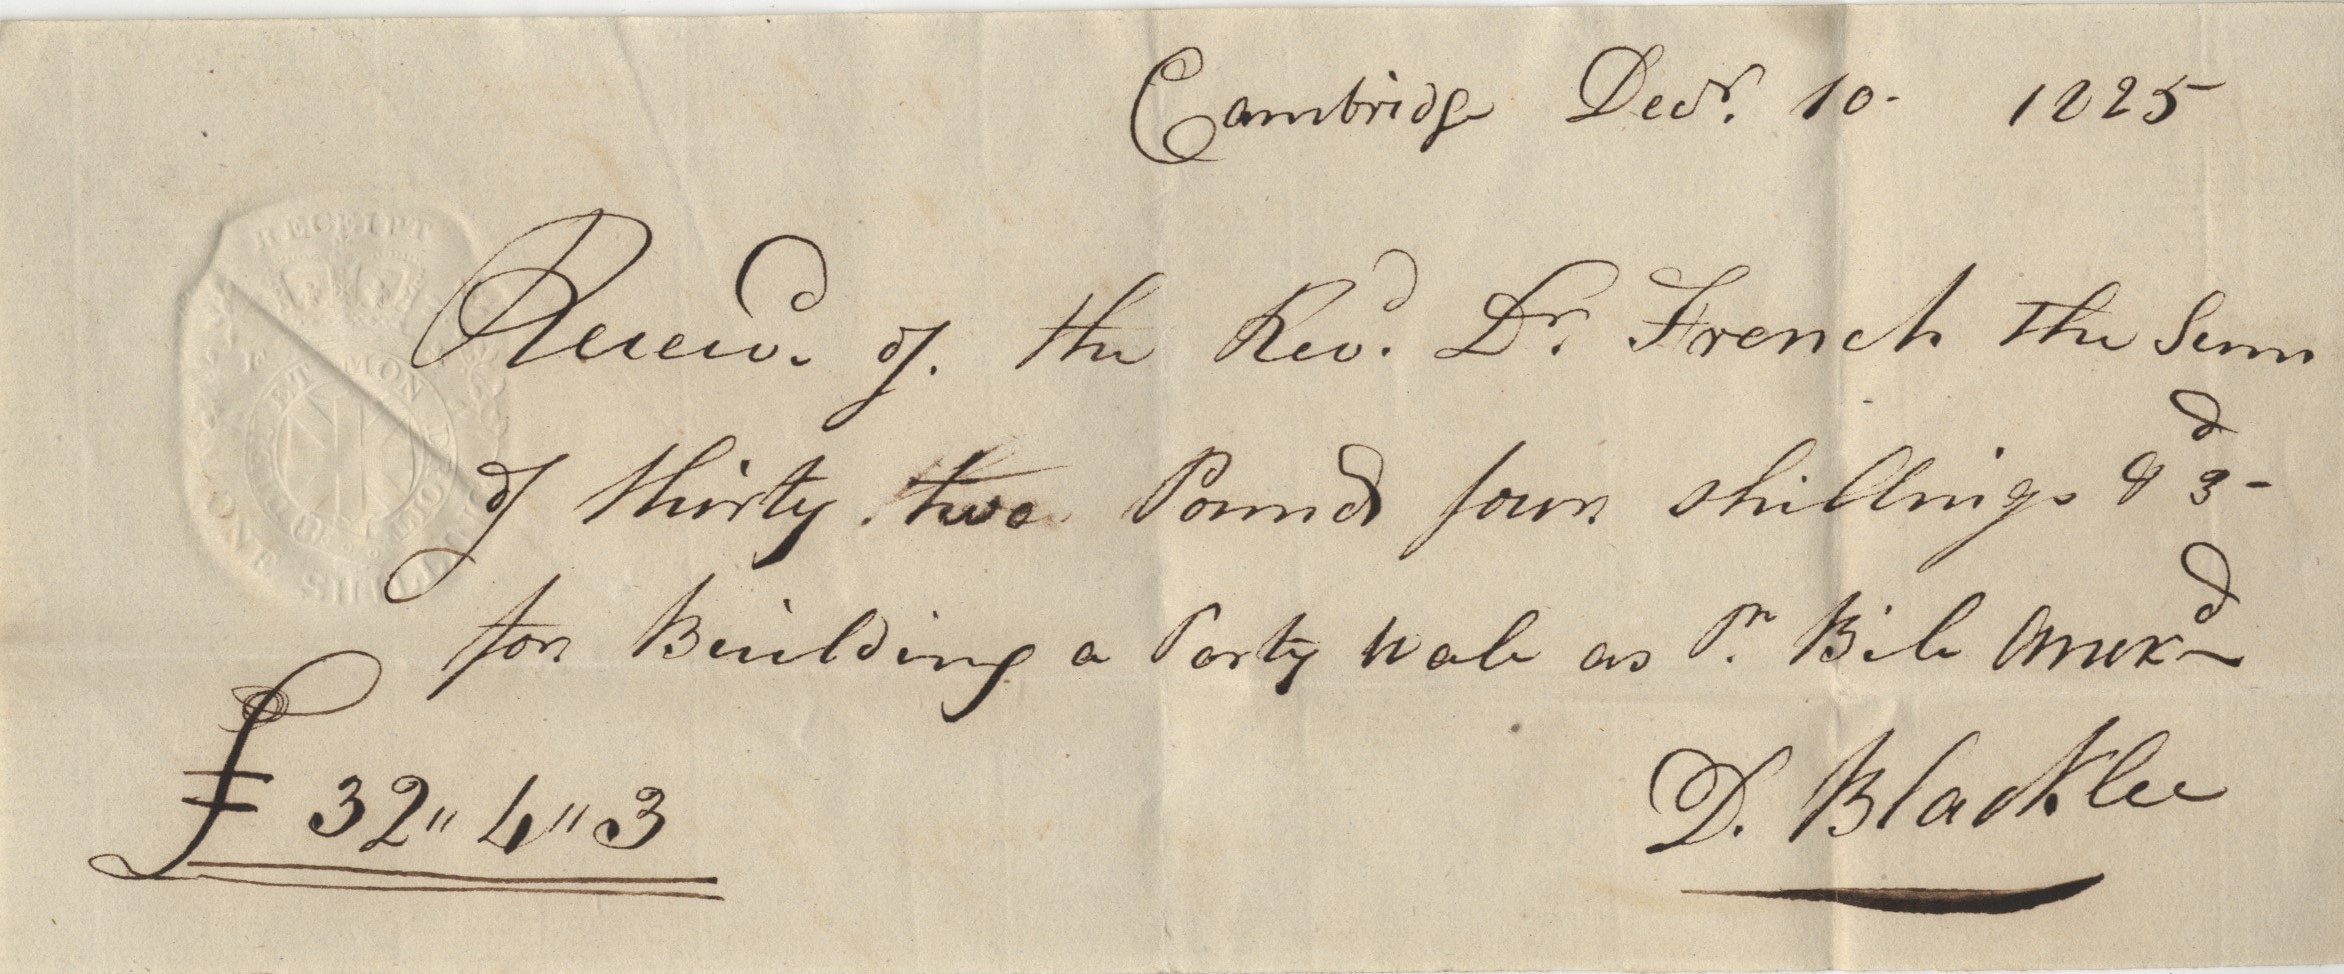 Cambridge Decr. 10 - 1825
RECEIPT
Receivd. of. the Revd. Dr. French the Sum
ET MON DROIT
of thirty two Pounds four shillings & 3d -
ONE SHILLING
for Building a Party Wall as Pr. Bill Anexd
£ 32 " 4 " 3
D. Blacklee